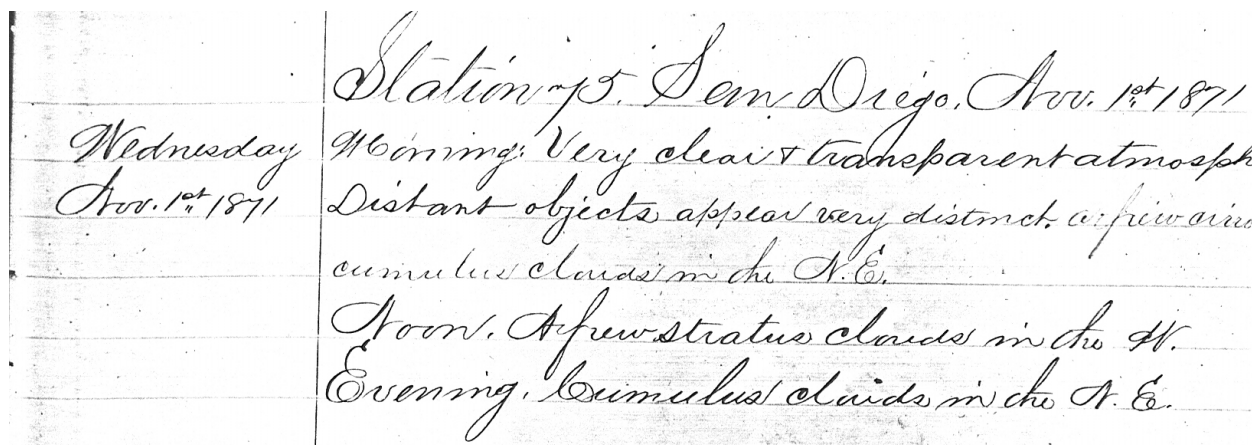 Station 75. San Diego. Nov. 1st 1871
Wednesday
Nov. 1st 1871
Morning: Very clear & transparent atmosph
Distant objects appear very distinct. a few cirro
cumulus clouds in the N.E.
Noon. A few stratus clouds in the W.
Evening. Cumulus clouds in the N.E.